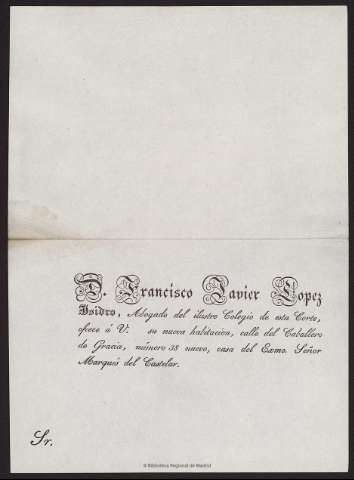 D. Francisco Javier Lopez
Ysidro, Abogado del ilustre Colegio de esta Corte,
ofrece á V. su nueva habitacion, calle del Caballero
de Gracia, número 38 nuevo, casa del Exmo. Señor
Marqués del Castelar.
Sr.
© Biblioteca Regional de Madrid